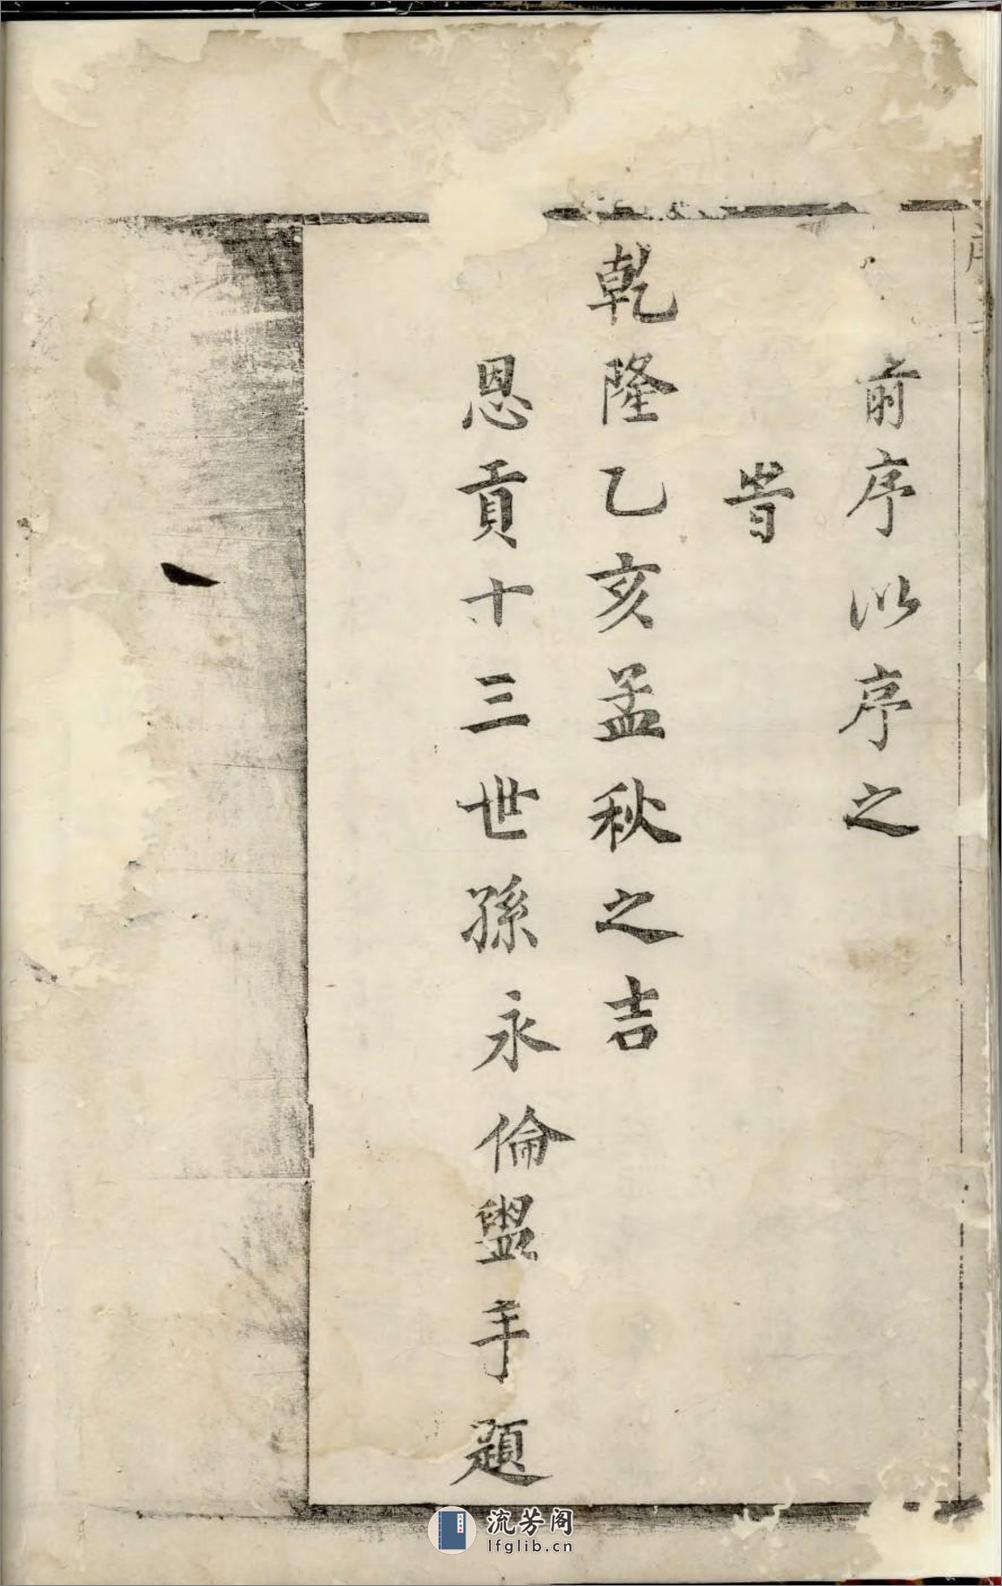 前序以序之
旹
乾隆乙亥孟秋之吉
恩貢十三世孫永倫盥手題
流芳阁
lfglib.cn